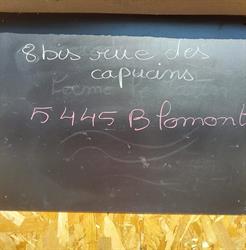 8 bis rue des
capucins
5445 Blomont